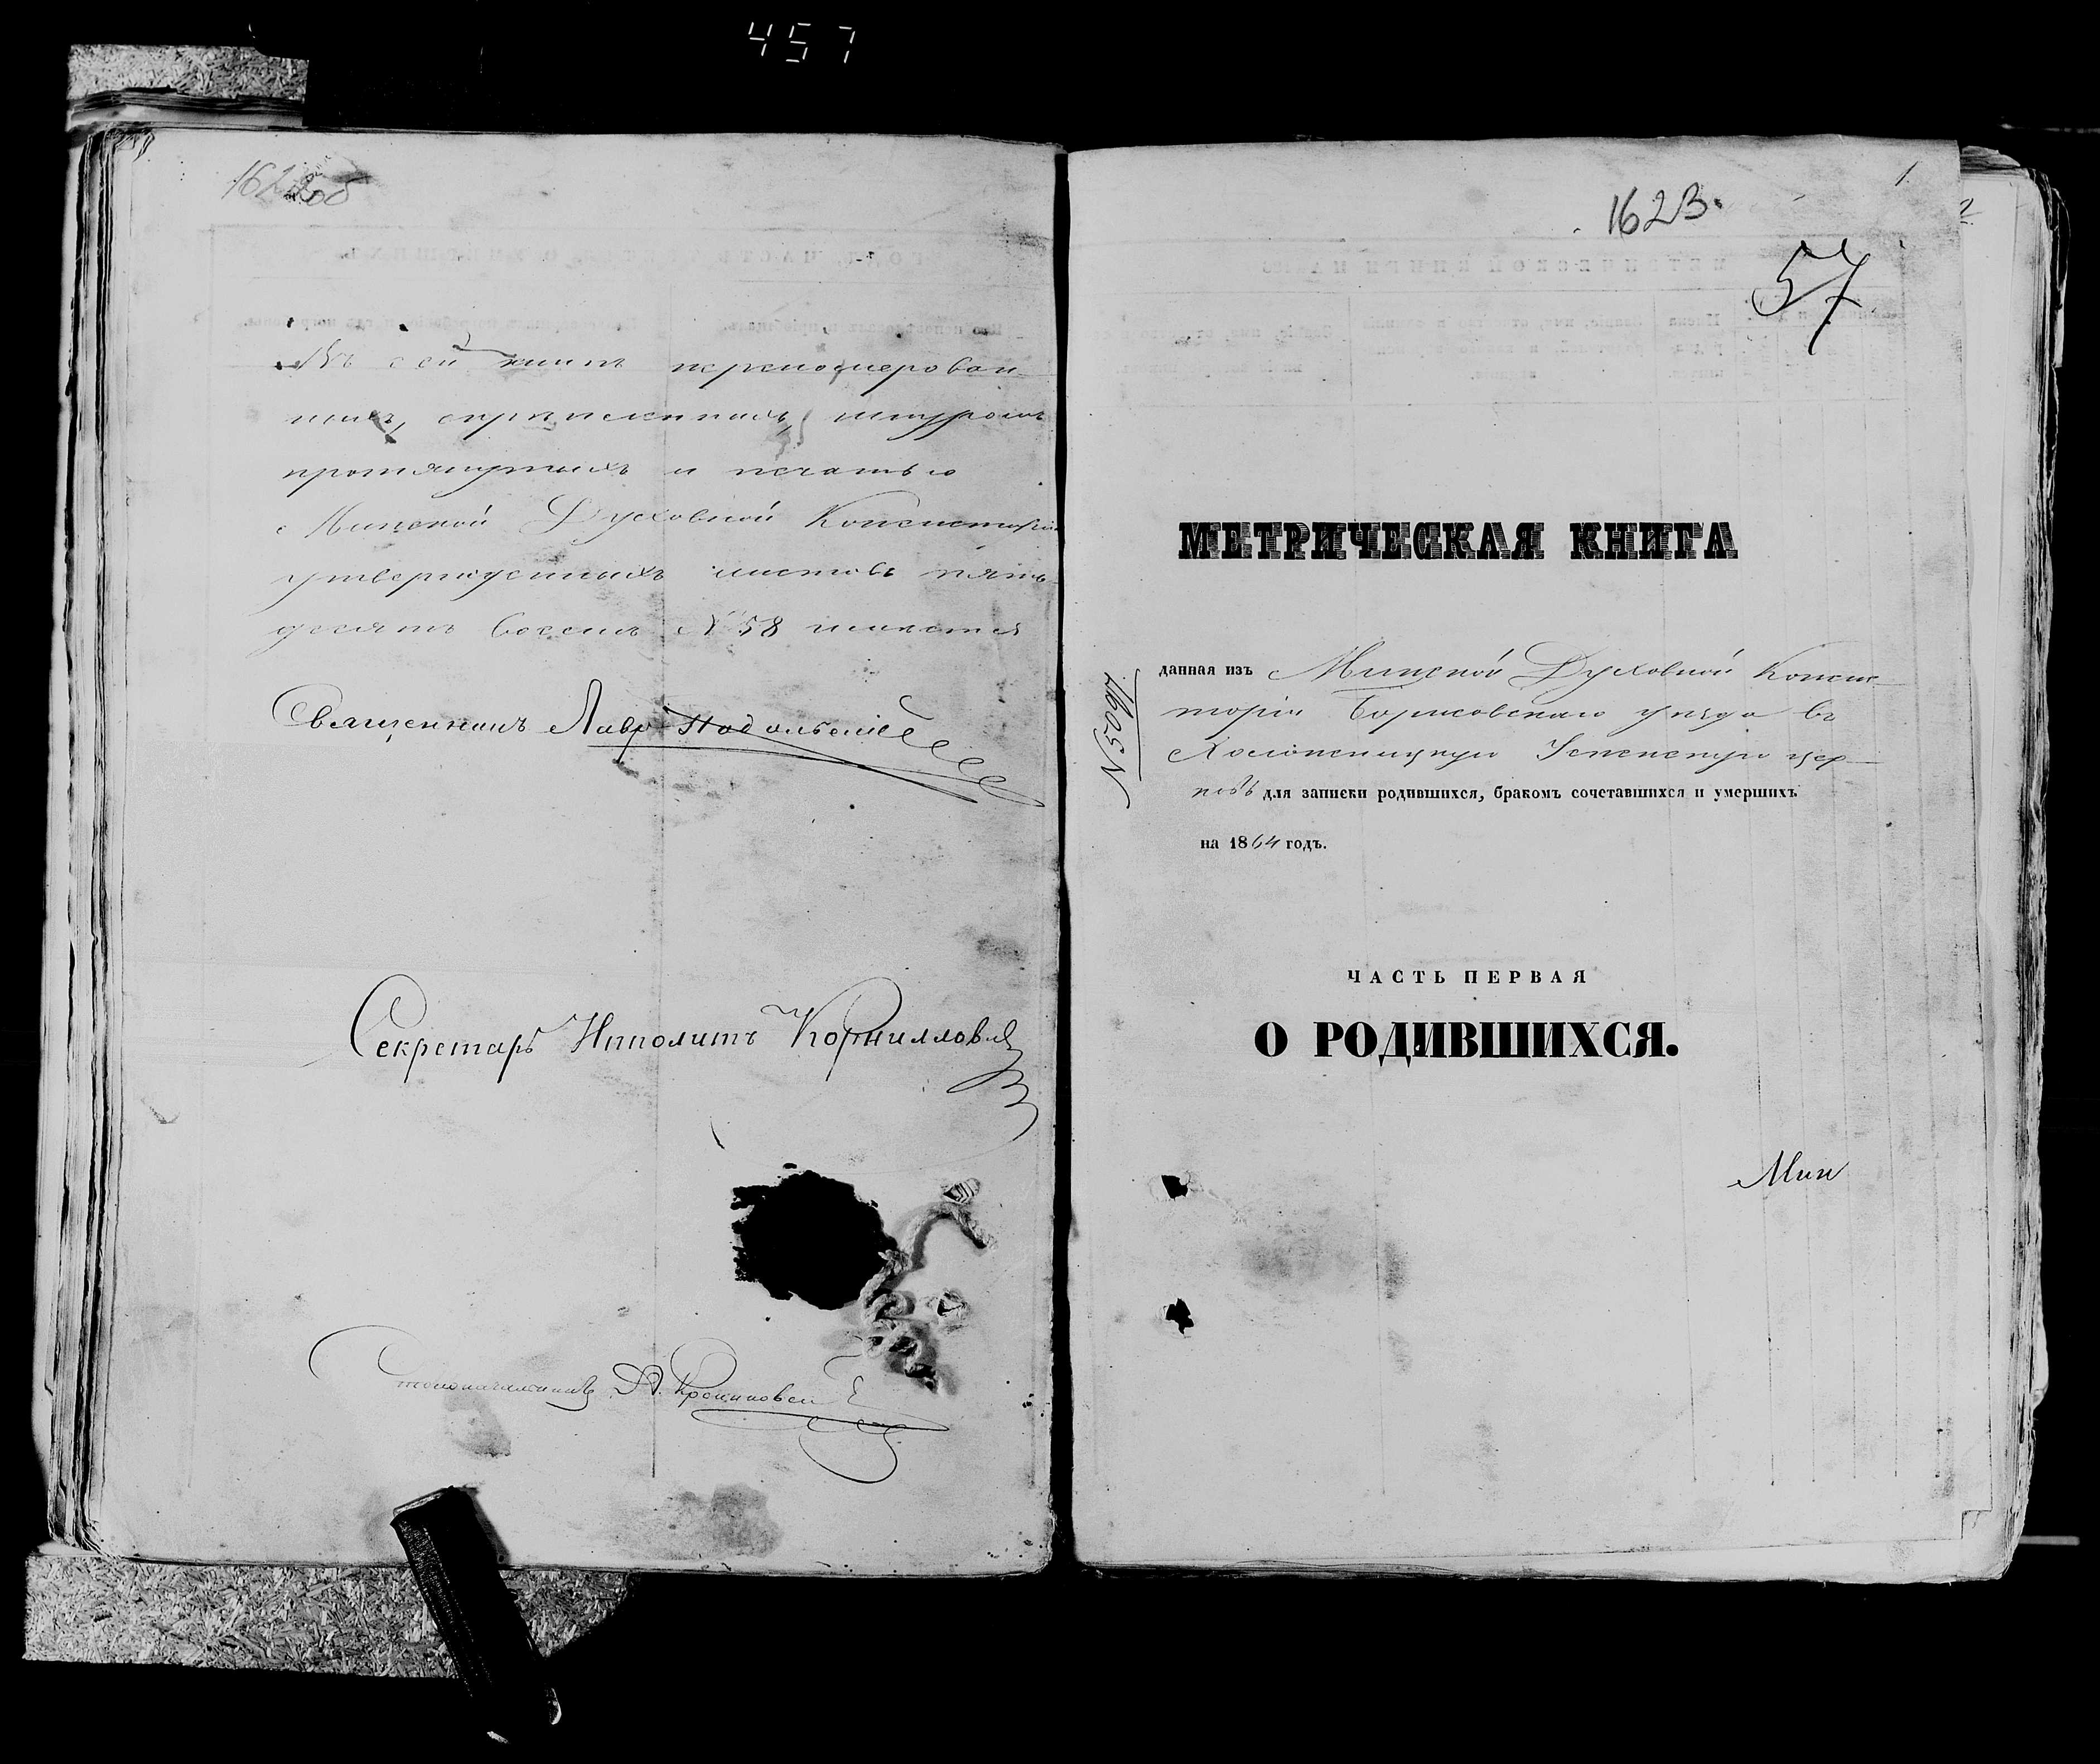 457
Въ сей книгѣ перенумерован-
ныхъ, скрѣпленныхъ, шнуромъ
протянутыхъ и печатью
Минской Духовной Консисторіи
утвержденныхъ листовъ пять-
десятъ восемь № 58 имѣется
Священникъ Лавр Подольскій
Секретарь Ипполитъ Корнилловъ
Столоначальникъ
1623.
1.
2
57
МЕТРИЧЕСКАЯ КНИГА
№ 5097.
данная изъ Минской Духовной Консис-
торіи Борисовскаго уѣзда въ
Холопеницкую Успенскую цер-
ковь для записки родившихся, бракомъ сочетавшихся и умершихъ
на 1864 годъ.
ЧАСТЬ ПЕРВАЯ
О РОДИВШИХСЯ.
Мин